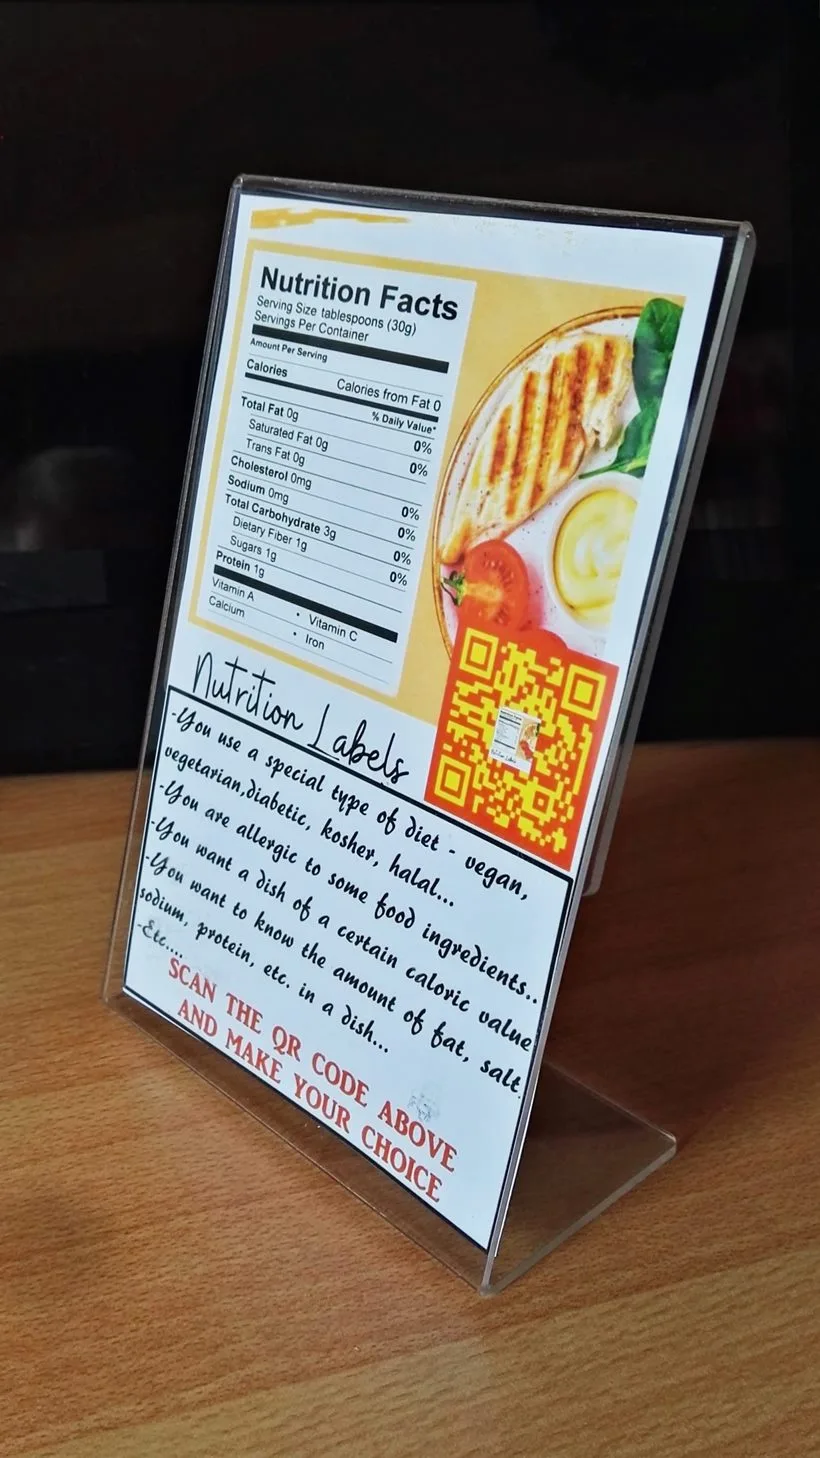 Nutrition Facts
Serving Size tablespoons (30g)
Servings Per Container
Amount Per Serving
Calories Calories from Fat 0
% Daily Value*
Total Fat 0g 0%
Saturated Fat 0g 0%
Trans Fat 0g
Cholesterol 0mg 0%
Sodium 0mg 0%
Total Carbohydrate 3g 0%
Dietary Fiber 1g 0%
Sugars 1g
Protein 1g
Vitamin A • Vitamin C
Calcium • Iron
Nutrition Labels
-You use a special type of diet - vegan,
vegetarian,diabetic, kosher, halal...
-You are allergic to some food ingredients..
-You want a dish of a certain caloric value
-You want to know the amount of fat, salt,
sodium, protein, etc. in a dish...
-Etc....
SCAN THE QR CODE ABOVE
AND MAKE YOUR CHOICE